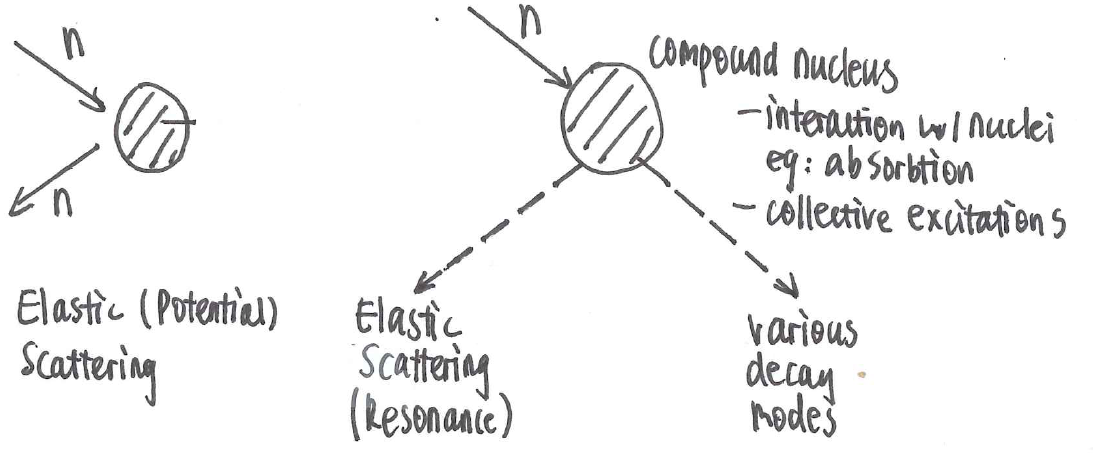 n
n
Elastic (Potential)
Scattering
n
compound nucleus
- interaction w/ nuclei
eg: absorbtion
- collective excitations
Elastic
Scattering
(Resonance)
various
decay
modes